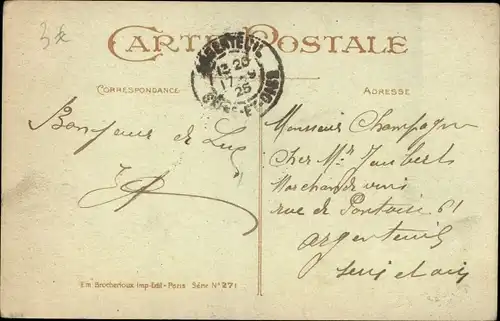 3x
CARTE POSTALE
ARGENTEUIL
13-20
17-9
25
SEINE-ET-OISE
CORRESPONDANCE
ADRESSE
Bonjour de
Monsieur Champagne
Chez Mr Jaubert
Marchand de vins
rue de Pontoise 61
argenteuil
Seine et oise
Em Brocherioux Imp-Edit-Paris Série No 271